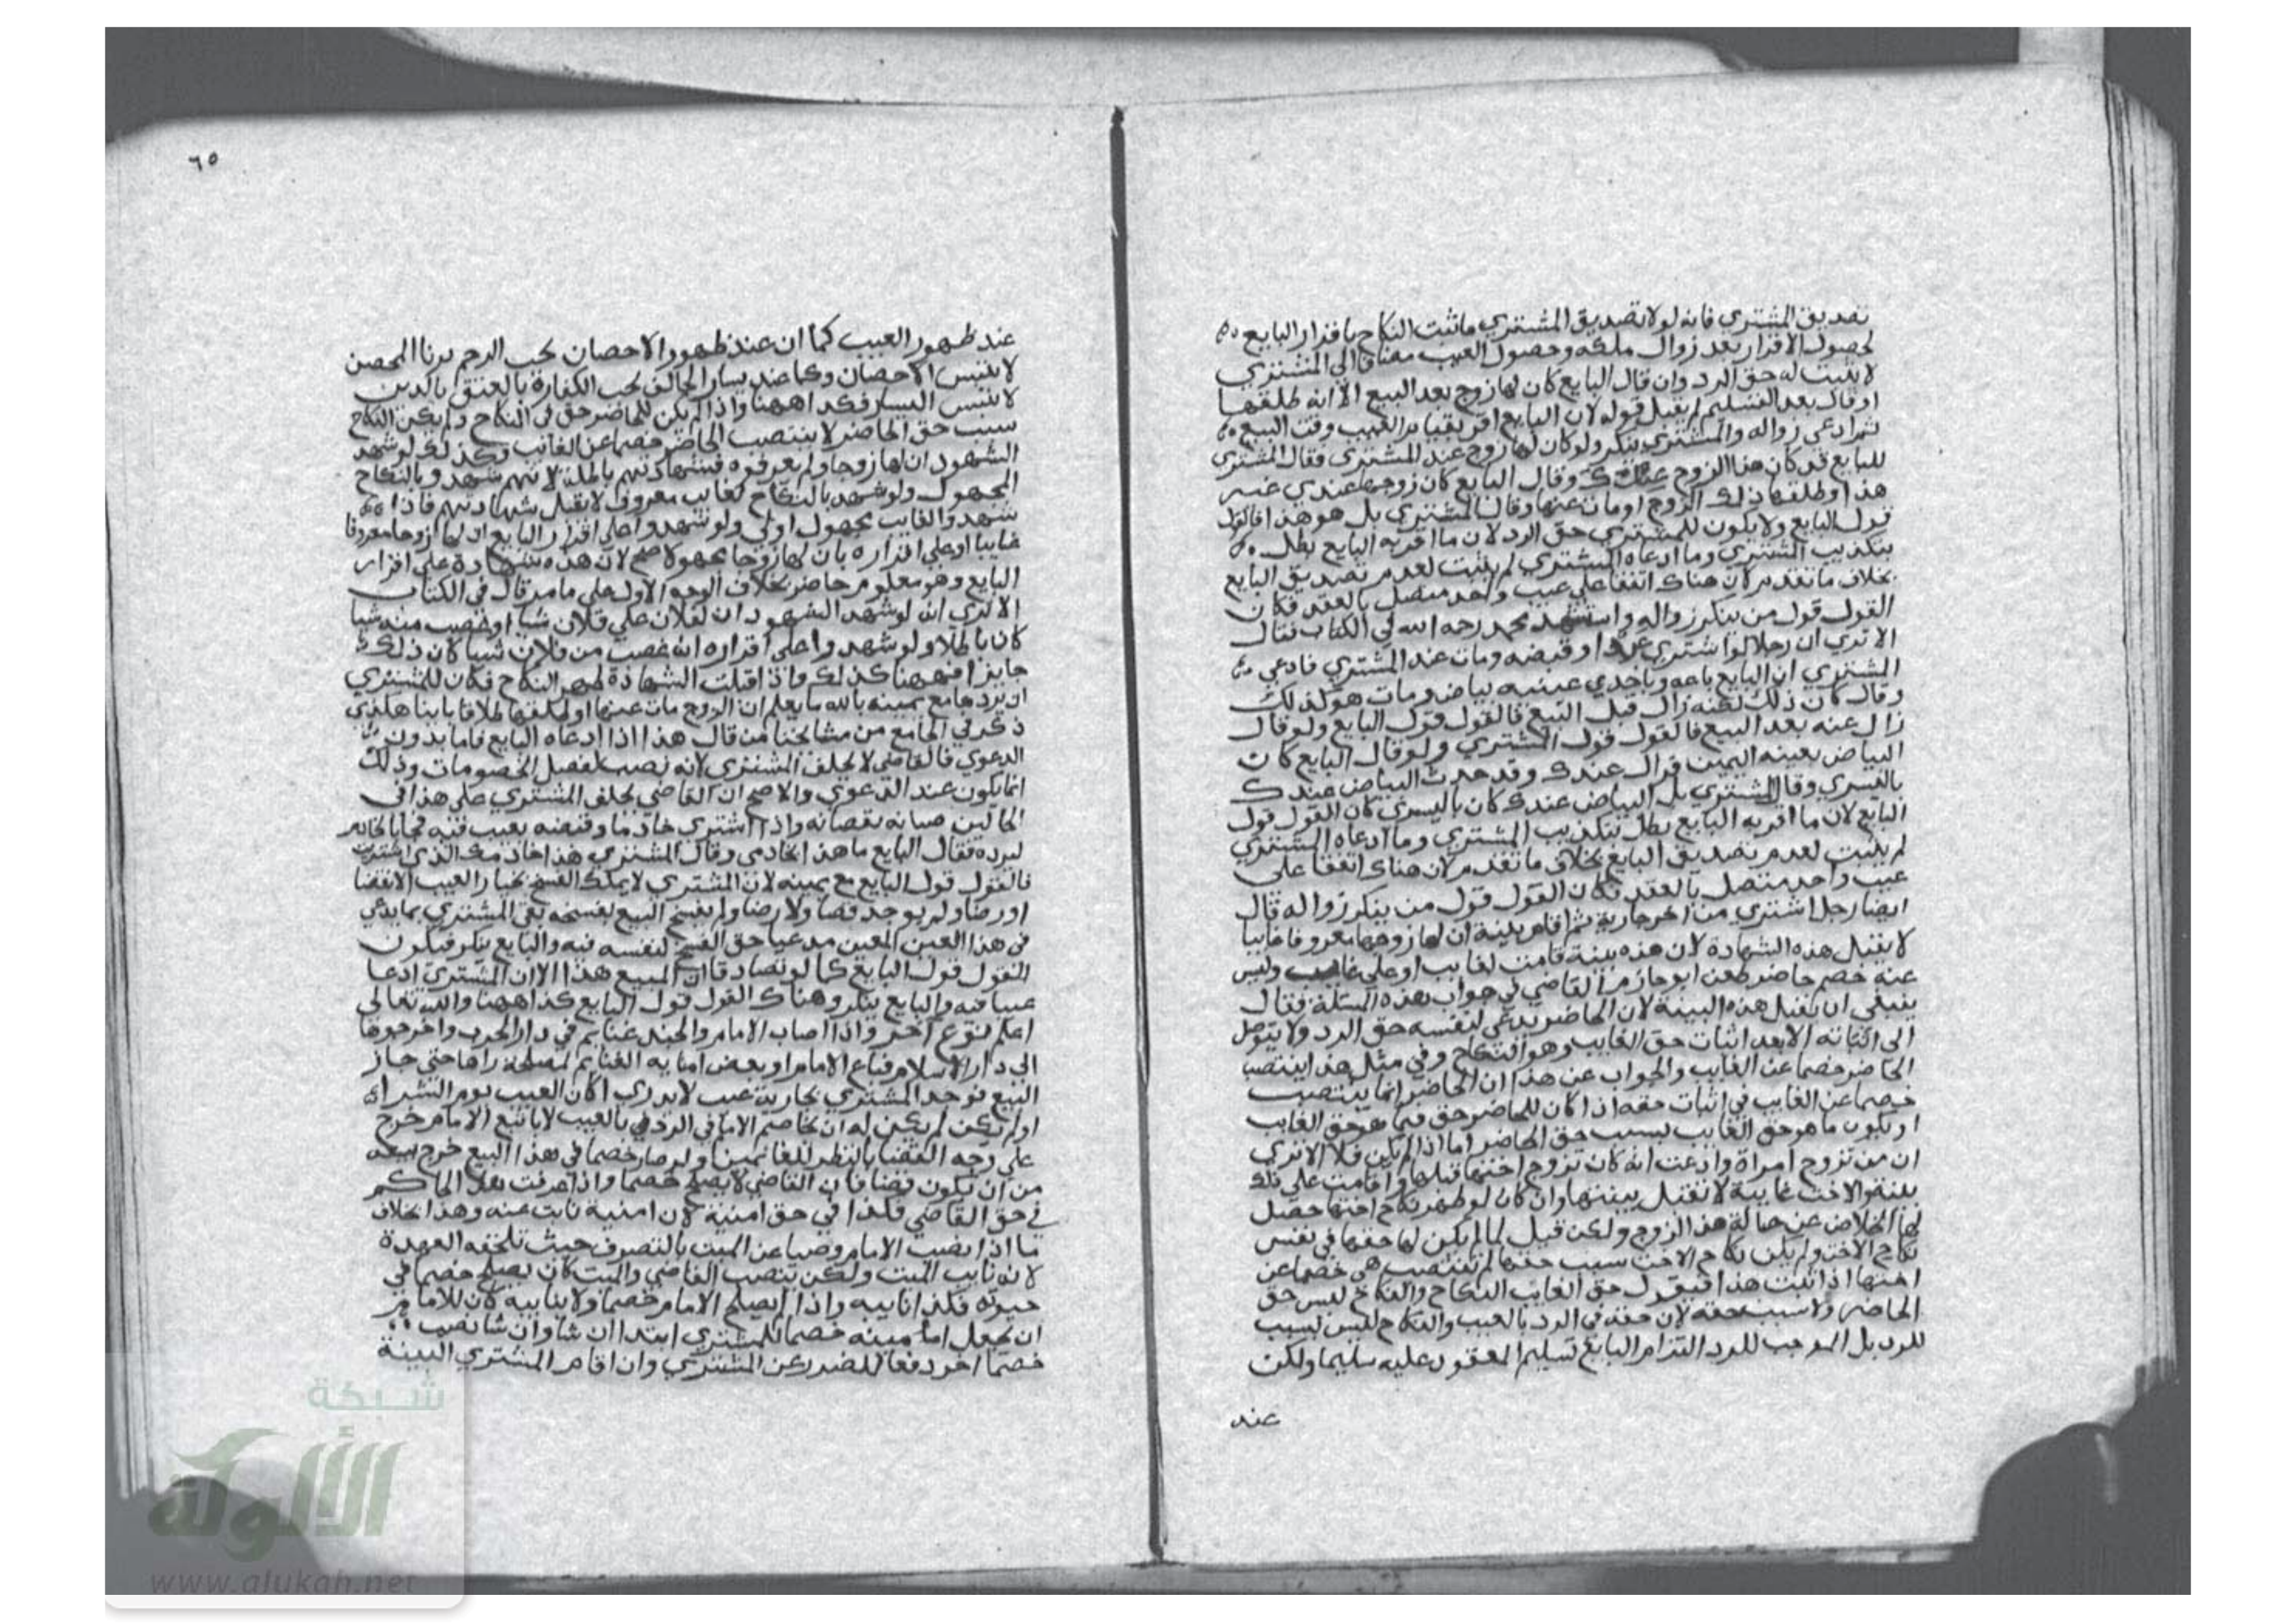 تصديق المشتري فانه لولا تصديق المشتري ما ثبت النكاح باقرار البايع
لحصول الاقرار بعد زوال ملكه وحصول العيب مضافا الى المشتري
لا يثبت له حق الرد وان قال البايع كان لها زوج بعد البيع الا انه طلقها
او قال بعد التسليم لم يقبل قوله لان البايع اقر بقيام العيب وقت البيع
ثم ادعى زواله والمشتري ينكر ولو كان لها زوج عند المشتري فقال المشتري
للبايع قد كان هذا الزوج عندك وقال البايع كان زوجها عندي غير
هذا وطلقها ذلك الزوج او مات عنها وقال المشتري بل هو هذا فالقول
قول البايع ولا يكون للمشتري حق الرد لان ما اقر به البايع بطل
بتكذيب المشتري وما ادعاه المشتري لم يثبت لعدم تصديق البايع
بخلاف ما تقدم لان هناك اتفقا على عيب واحد متصل بالعقد فكان
القول قول من ينكر زواله واستشهد محمد رحمه الله في الكتاب فقال
الا تري ان رجلا لو اشتري عبدا وقبضه ومات عند المشتري فادعى
المشتري ان البايع باعه وباحدي عينيه بياض ومات هو كذلك
وقال كان ذلك لكنه زال قبل البيع فالقول قول البايع ولو قال
زال عنه بعد البيع فالقول قول المشتري ولو قال البايع كان
البياض بعينه اليمين فزال عندك وقد حدث البياض عندك
باليسري وقال المشتري بل البياض عندك كان باليسري كان القول قول
البايع لان ما اقر به البايع بطل بتكذيب المشتري وما ادعاه المشتري
لم يثبت لعدم تصديق البايع بخلاف ما تقدم لان هناك اتفقا على
عيب واحد متصل بالعقد فكان القول قول من ينكر زواله قال
ايضا رجل اشتري من اخر جارية ثم اقام بينة ان لها زوجا معروفا غايبا
لا يقبل هذه الشهادة لان هذه بينة قامت لغايب او على غايب وليس
عنه خصم حاضر طعن ابو حازم القاضي في جواب هذه المسئلة فقال
ينبغي ان يقبل هذه البينة لان الحاضر يدعي لنفسه حق الرد ولا يتوصل
الى اثباته الا بعد اثبات حق الغايب وهو النكاح وفي مثل هذا ينتصب
الحاضر خصما عن الغايب والجواب عن هذا ان الحاضر انما ينتصب
خصما عن الغايب في اثبات حقه اذا كان للحاضر حق فيما هو حق الغايب
او يكون ما هو حق الغايب بسبب حق الحاضر اما اذا لم يكن فلا الا تري
ان من تزوج امراة وادعت انه كان تزوج اختها قبلها واقامت على ذلك
بينة والاخت غايبة لا تقبل بينتها وان كان لو ظهر نكاح اختها حصل
لها الخلاص عن حبالة هذا الزوج ولكن قيل لما لم يكن لها حقها في نفس
نكاح الاخت ولم يكن نكاح الاخت سبب حقها لم تنتصب هي خصما عن
اختها اذا ثبت هذا فنقول حق الغايب النكاح والنكاح ليس حق
الحاضر ولا سبب حقه لان حقه في الرد بالعيب والنكاح ليس بسبب
للرد بل الموجب للرد التزام البايع تسليم المعقود عليه سليما ولكن
عند
٦٥
عند ظهور العيب كما ان عند ظهور الاحصان يجب الرجم بزنا المحصن
لا بنفس الاحصان وكما عند يسار الحالف يجب الكفارة بالعتق باليمين
لا بنفس اليسار فكذا ههنا واذا لم يكن للحاضر حق في النكاح ولم يكن النكاح
سبب حق الحاضر لا ينتصب الحاضر خصما عن الغائب وكذلك لو شهد
الشهود ان لها زوجا ولم يعرفوه فشهادتهم باطلة لانهم شهدوا بالنكاح
المجهول ولو شهدوا بالنكاح لغايب معروف لا يقبل شهادتهم فاذا
شهدوا لغايب مجهول اولى ولو شهدوا على اقرار البايع ان لها زوجا معروفا
غايبا او على اقراره بان لها زوجا مجهولا صح لان هذه شهادة على اقرار
البايع وهو معلوم حاضر بخلاف الوجه الاول على ما مر قال في الكتاب
الا تري انه لو شهد الشهود ان لفلان على فلان شيا او غصب منه شيا
كان باطلا ولو شهدوا على اقراره انه غصب من فلان شيا كان ذلك
جايزا فههنا كذلك واذا قبلت الشهادة ظهر النكاح فكان للمشتري
ان يرد مع يمينه بالله ما يعلم ان الزوج مات عنها او طلقها طلاقا باينا هكذي
ذكر في الجامع من مشايخنا من قال هذا اذا ادعاه البايع فاما بدون
الدعوي فالقاضي لا يحلف المشتري لانه نصب لفصل الخصومات وذلك
انما يكون عند الدعوي والاصح ان القاضي يحلف المشتري على هذا في
الحالين صيانه لقضائه واذا اشتري خادما وقبضه بعيب فيه فجا بالخادم
ليرده فقال البايع ما هذا خادمي وقال المشتري هذا خادمك الذي اشتريت
فالقول قول البايع مع يمينه لان المشتري لا يملك الفسخ بخيار العيب الا بقضا
او رضا ولم يوجد قضا ولا رضا ولم يفسخ البيع بفسخه بقي المشتري بما يدعي
في هذا العين المعين مدعيا حق الفسخ لنفسه فيه والبايع ينكر فيكون
القول قول البايع كما لو تصادقا ان المبيع هذا الا ان المشتري ادعا
عيبا فيه والبايع ينكر وهناك القول قول البايع كذا ههنا والله تعالى
اعلم نوع اخر واذا اصاب الامام والجند غنايم في دار الحرب واخرجوها
الى دار الاسلام فباع الامام او بعض امنايه الغنايم لمصلحة راها حتى جاز
البيع فوجد المشتري بجارية عيب لا يدري اكان العيب يوم الشراء
او لم يكن لم يكن له ان يخاصم الامام في الرد بالعيب لان بيع الامام خرج
على وجه القضا بالنظر للغانمين ولو صار خصما في هذا البيع خرج بيعه
من ان يكون قضا فان القاضي لا يصلح خصما واذا عرفت هذا الحاكم
في حق القاضي فكذا في حق امنيه لان امنيه نائب عنه وهذا بخلاف
ما اذا نصب الامام وصيا عن الميت بالتصرف حيث تلحقه العهدة
لانه نايب الميت ولكن بنصب القاضي والميت كان يصلح خصما في
حيوته فكذا نايبه واذا لم يصلح الامام خصما ولا نايبه كان للامام
ان يجعل امينه خصما للمشتري ابتداء ان شا وان شا نصب
خصما اخر دفعا للضرر عن المشتري وان اقام المشتري البينة
شبكة
الألوكة
www.alukah.net